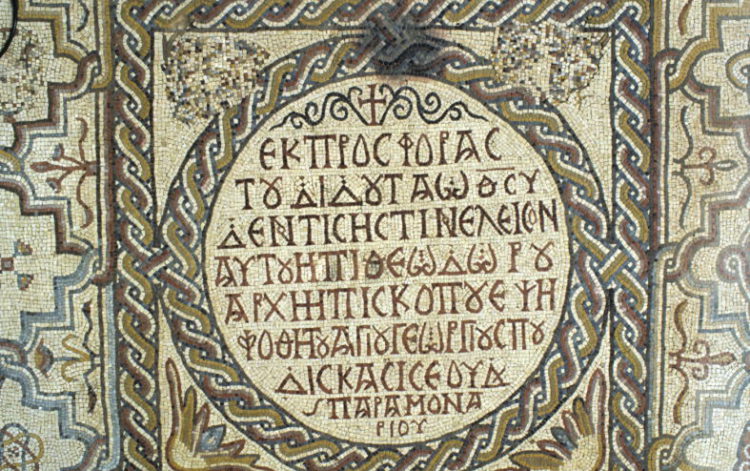 ΕΚΠΡΟϹΦΟΡΑϹ
ΤȢΔΙΔȢΤΑΩΘϹΥ
ΔΕΝΤΙϹΗϹΤΙΝΕΛΕΙϹΟΝ
ΑΥΤȢΗΠΙΘΕΩΔΩΡȢ
ΑΡΧΗΗΠΙϹΚΟΠȢΕΨΗ
ΦΟΘΗȢΑΓΙȢΓΕΩΡΓΙȢϹΠȢ
ΔΙϹΚΑϹΙϹΕΟΥΔ
ϚΠΑΡΑΜΟΝΑ
ΡΙΟΥ